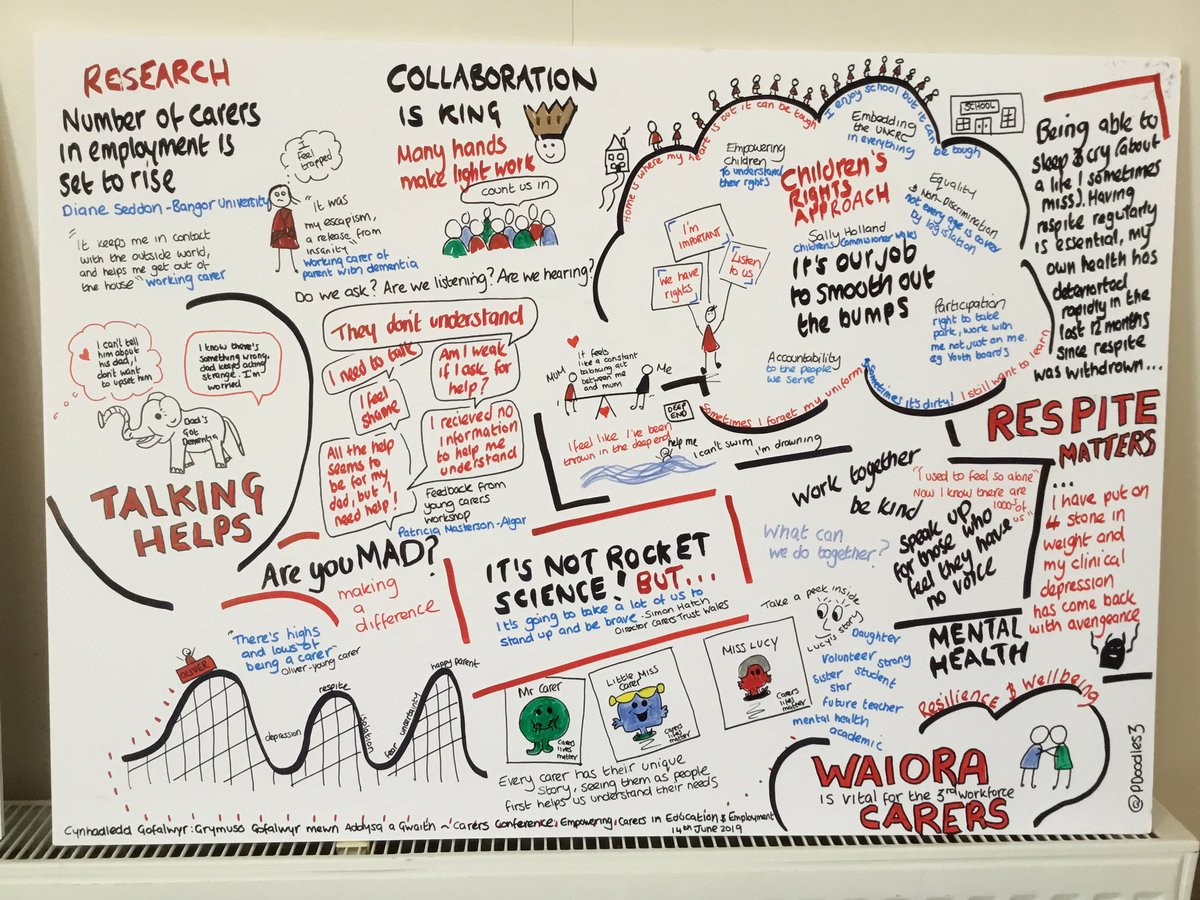 RESEARCH
Number of carers
in employment is
set to rise
Diane Seddon-Bangor University
"It keeps me in contact
with the outside world,
and helps me get out of
the house" working carer
I
feel
trapped
"It was
my escapism,
a release from
insanity"
working carer of
parent with dementia
COLLABORATION
IS KING
Many hands
make light work
count us in
Do we ask? Are we listening? Are we hearing?
Home is where my heart is but it can be tough
I enjoy school but it can be tough
SCHOOL
Empowering
Children
To understand
their rights
Embedding
the UNCRC
in everything
CHILDREN'S
RIGHTS
APPROACH
Equality
& Non-Discrimination
not every age is covered
by legislation
Sally Holland
Children's Commissioner Wales
It's our job
to smooth out
the bumps
Participation
right to take
part, work with
me not just on me.
eg Youth boards
Accountability
to the people
we serve
I'm
IMPORTANT
We have
rights
Listen
to us
Sometimes I forget my uniform
Sometimes it's dirty! I still want to learn
Being able to
sleep & cry (about
a life I sometimes
miss). Having
respite regularly
is essential, my
own health has
deteriorted
rapidly in the
last 12 months
since respite
was withdrawn...
RESPITE
MATTERS
...
I have put on
4 stone in
weight and
my clinical
depression
has come back
with avengeance
I can't tell
him about
his dad, I
don't want
to upset him
I know there's
something wrong,
dad keeps acting
strange. I'm
worried
Dad's
Got
Dementia
TALKING
HELPS
They don't understand
I need to talk
Am I weak
if I ask for
help?
I feel
shame
I recieved no
information
to help me
understand
All the help
seems to
be for my
dad, but I
need help!
Feedback from
young carers
workshop
Patricia Masterson-Algar
It feels
like a constant
balancing act
between me
and mum
MUM
Me
DEEP
END
I feel like I've been
thrown in the deep end
help me
I can't swim
i'm drowning
Are you MAD?
making
a
difference
"There's highs
and lows of
being a carer"
Oliver-young carer
OLIVER
depression
respite
isolation
fear uncertainty
happy parent
IT'S NOT ROCKET
SCIENCE! BUT...
It's going to take a lot of us to
stand up and be brave -Simon Hatch
Director Carers Trust Wales
work together
be kind
What can
we do together?
"I used to feel so alone"
Now I know there are
1000s of
us"
Speak up
for those who
feel they have
no voice
MENTAL
HEALTH
Mr Carer
Carers
lives
matter
Little Miss
Carer
Carers
lives
matter
MISS LUCY
Carers
lives
matter
Take a peek inside
Lucy's story
Daughter
Volunteer strong
Sister student
star
future teacher
mental health
academic
Every carer has their unique
story, seeing them as people
first helps us understand their needs
Resilience & Wellbeing
WAIORA
IS VITAL for the 3rd workforce
CARERS
@PDoodles3
Cynhadledd Gofalwyr: Grymuso Gofalwyr mewn Addysg a Gwaith ~ Carers Conference: Empowering Carers in Education & Employment
14th June 2019